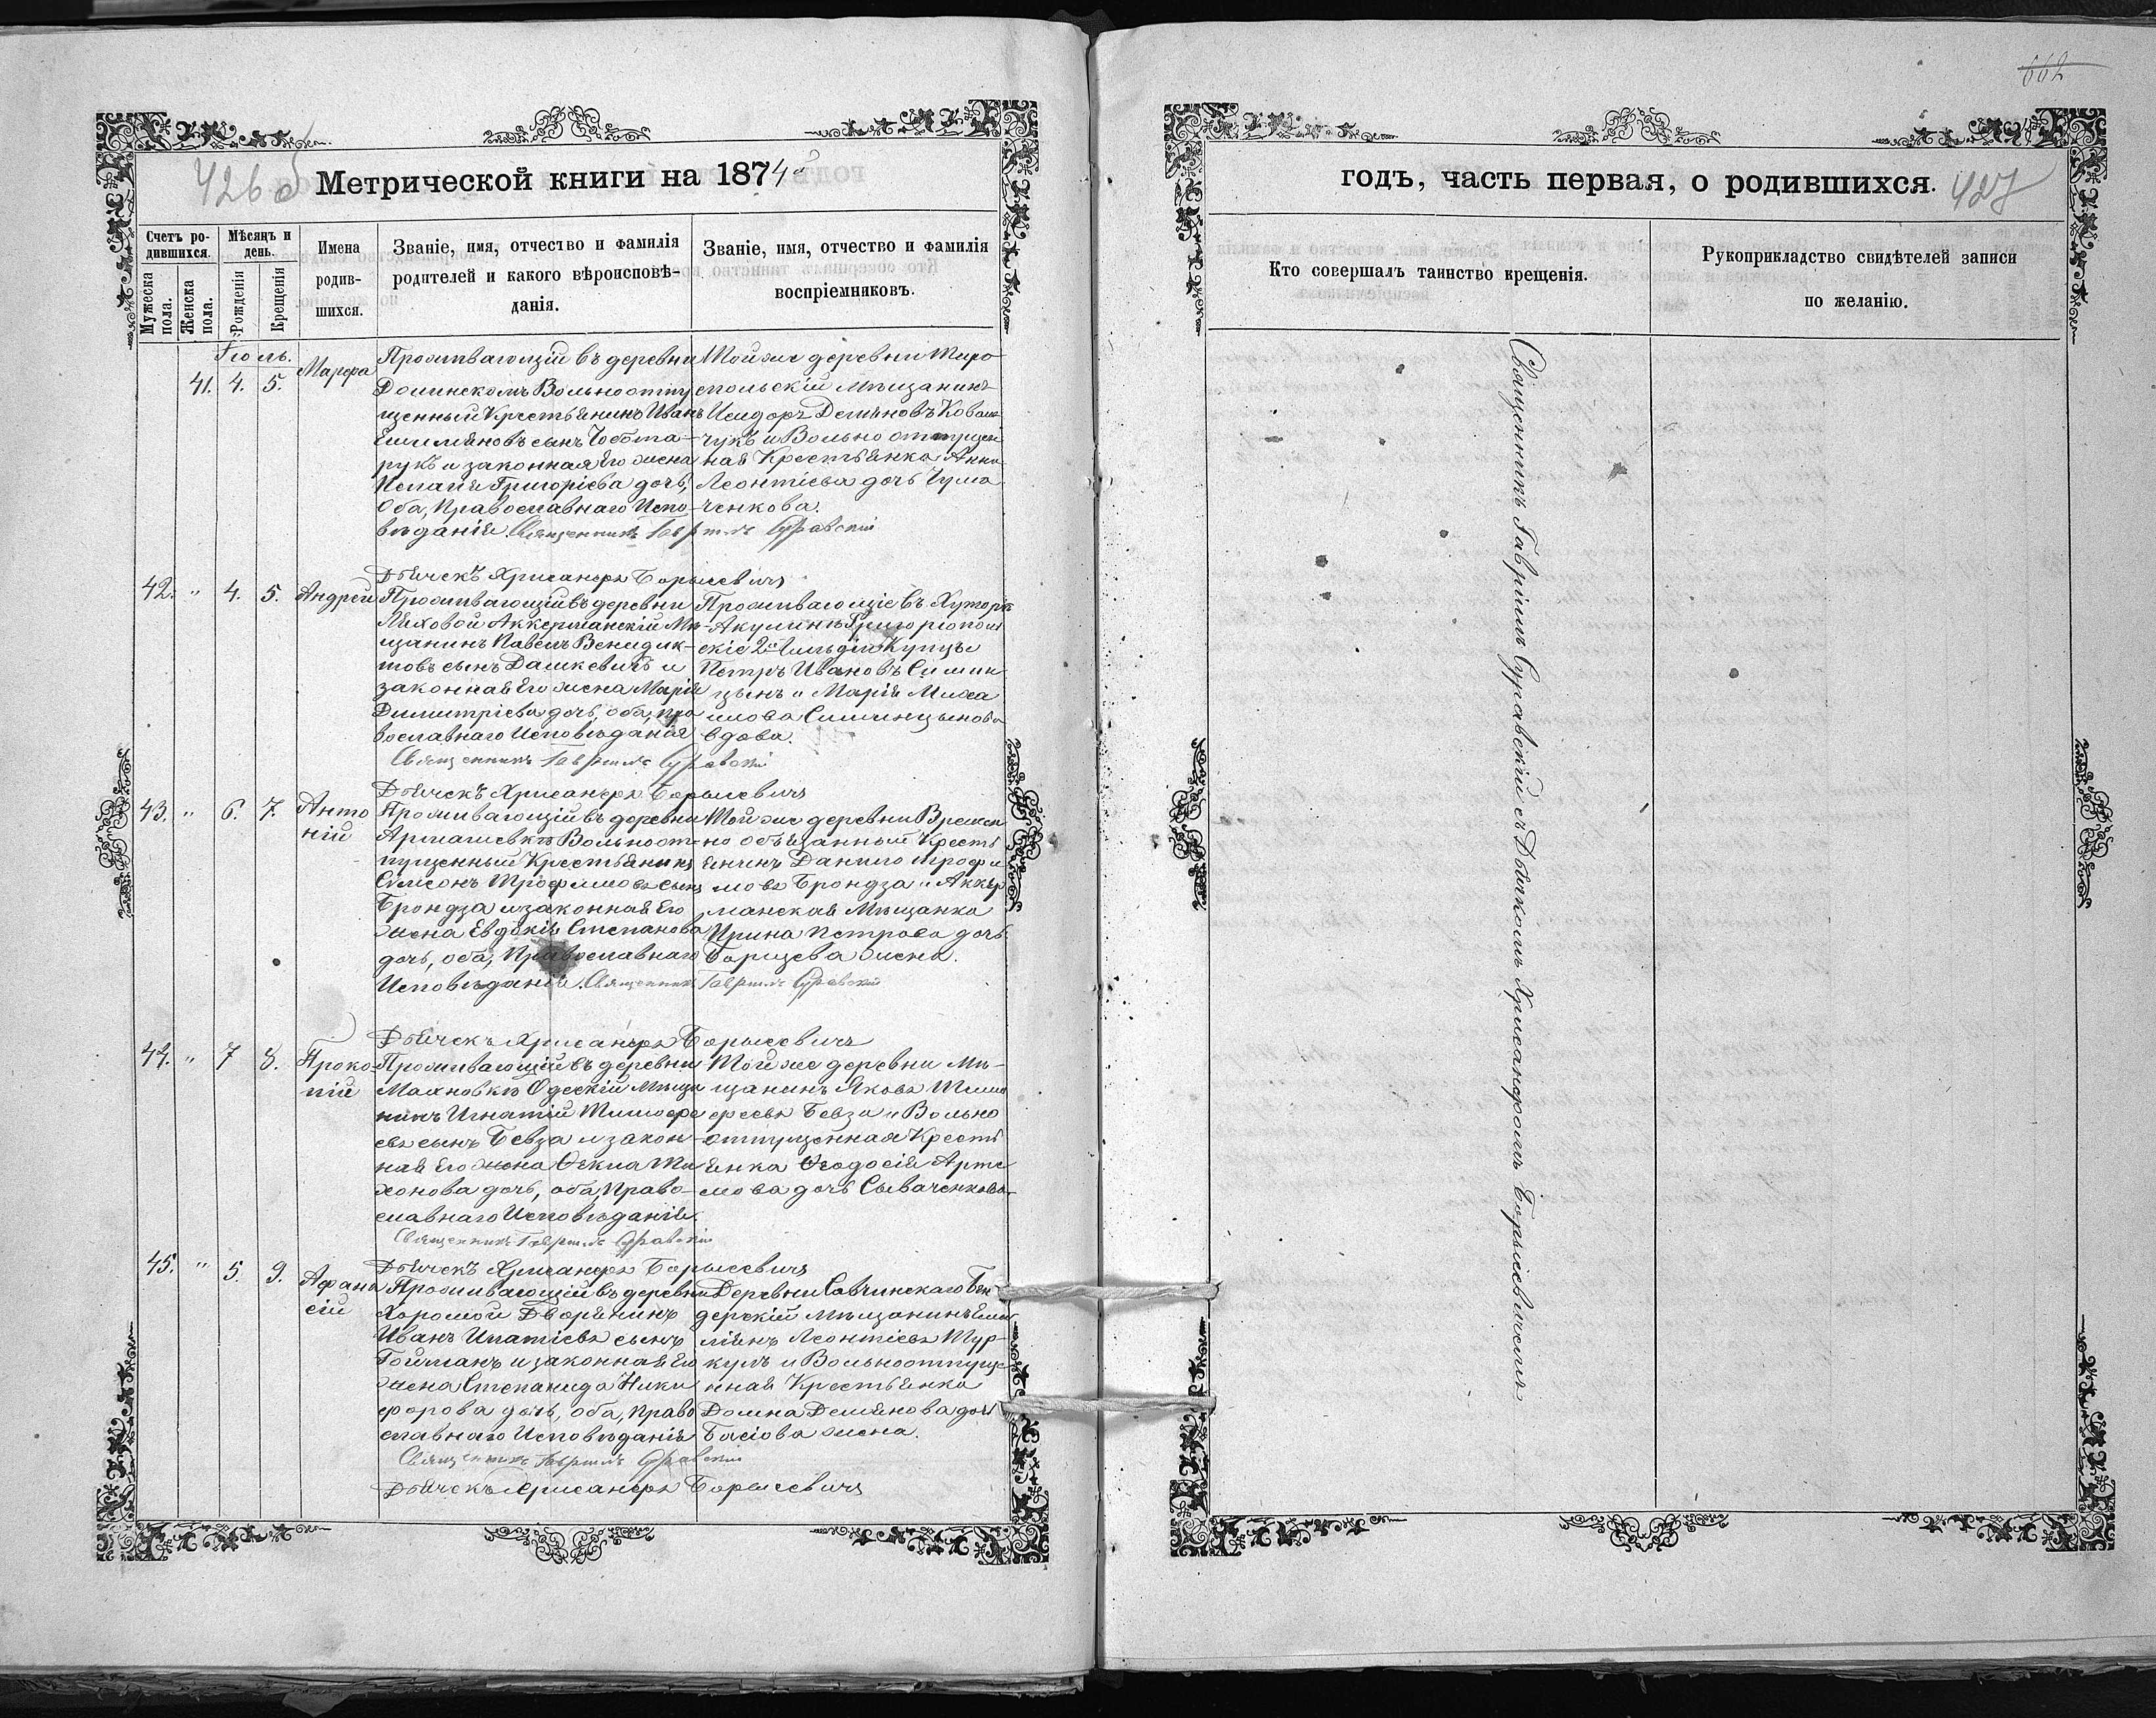 662
426 об
Метрической книги на 1874й
Счетъ родившихся.
Мѣсяцъ и день.
Мужеска пола.
Женска пола.
Рожденія
Крещенія
Имена родившихся.
Званіе, имя, отчество и фамилія
родителей и какого вѣроисповѣ-
данія.
Званіе, имя, отчество и фамилія
воспріемниковъ.
Іюль.
41. 4. 5.
Марѳа
Проживающій въ деревни
Долинскомъ Вольноотпу
щенный Крестьянинъ Иванъ
Емиліяновъ сынъ Чобота-
рукъ и законная его жена
Пелагія Григоріева дочь,
оба, Православнаго Испо-
вѣданія. Священникъ Гавріилъ Суравскій
Той же деревни Тиро
спольскій Мѣщанинъ
Исидоръ Деміяновъ Коваль
чукъ и Вольно отпущен
ная Крестьянка Анна
Леонтіева дочь Чума
ченкова.
Дьячекъ Хрисанфъ Борысевичъ
42. " 4. 5. Андрей
Проживающій въ деревни
Ляховой Аккерманскій Мѣ-
щанинъ Павелъ Венедик-
товъ сынъ Дашкевичъ и
законная его жена Марія
Димитріева дочь, оба, пра
вославнаго Исповѣданія
Священникъ Гавріилъ Суравскій
Проживающіе въ Хуторѣ
Акулинъ Григоріопол
скіе 2й Гильдіи Купцы
Петръ Ивановъ Симин
цынъ и Марія Миха
илова Симинцынова
вдова.
Дьячекъ Хрисанфъ Борысевичъ
43. " 6. 7. Анто
ній
Проживающій въ деревни
Армашевкѣ Вольноот-
пущенный Крестьянинъ
Симеонъ Трофимовъ сынъ
Брондза и законная его
жена Евдокія Степанова
дочь, оба, Православнаго
Исповѣданія. Священникъ Гавріилъ Суравскій
Той же деревни Времен
но обязанный Кресть
янинъ Данило Трофи
мовъ Брондза и Аккер
манская Мѣщанка
Ирина Петрова дочь
Борщева жена.
Дьячекъ Хрисанфъ Борысевичъ
44. " 7 8. Проко
пій
Проживающій въ деревни
Махновкѣ Одескій Мѣща
нинъ Игнатій Тимофе
евъ сынъ Бевза и закон-
ная его жена Фекла Ти
хонова дочь, оба, Право-
славнаго Исповѣданія.
Священникъ Гавріилъ Суравскій
Той же деревни Мѣ-
щанинъ Яковъ Тимо
феевъ Бевза и Вольно
отпущенная Кресть
янка Феодосія Арте
мова дочь Сываченкова
Дьячекъ Хрисанфъ Борысевичъ
45. " 5. 9. Афана
сій
Проживающій въ деревни
Хорошой Дворянинъ
Иванъ Игнатіевъ сынъ
Гойманъ и законная его
жена Степанида Ники
форова дочь, оба, право
славнаго Исповѣданія
Священникъ Гавріилъ Суравскій
Деревни Савчинскаго Бен
дерскій Мѣщанинъ Еми
ліянъ Леонтіевъ Тур-
кулъ и Вольноотпуще
нная Крестьянка
Домна Деміянова дочь
Басіова жена.
Дьячекъ Хрисанфъ Борысевичъ
годъ, часть первая, о родившихся.
427
Кто совершалъ таинство крещенія.
Рукоприкладство свидѣтелей записи
по желанію.
Священникъ Гавріилъ Суравскій съ Дьячкомъ Хрисанфомъ Борысевичемъ